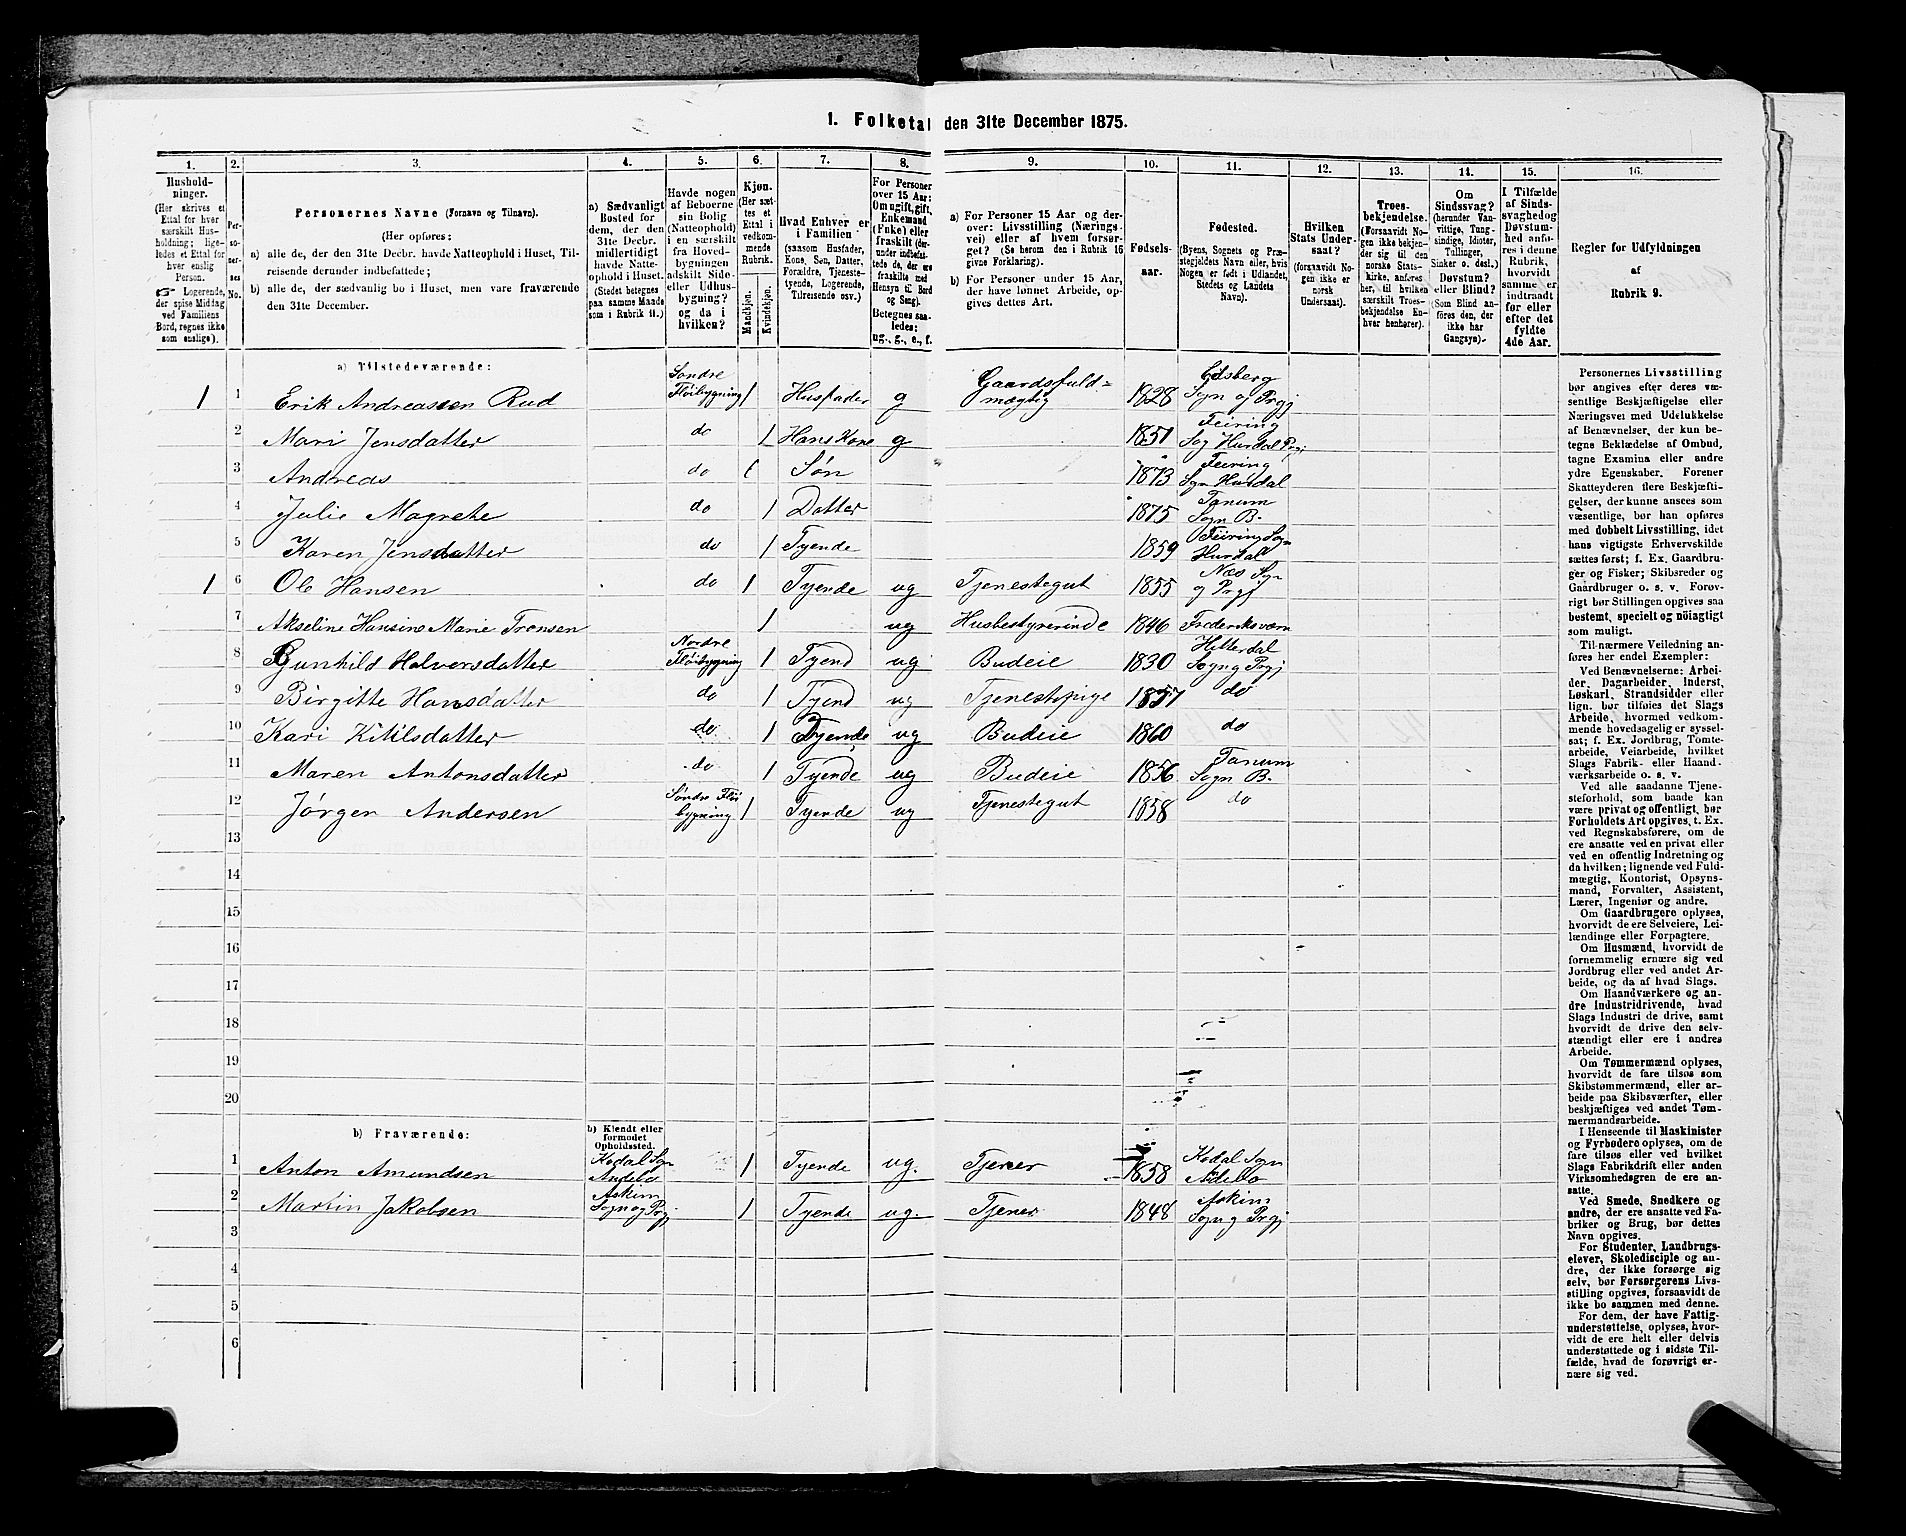 1. Folketal den 31te December 1875.
1. 2. 3. 4. 5. 6. 7. 8. 9. 10. 11. 12. 13. 14. 15. 16.
Hushold-
ninger.
(Her skrives et
Ettal for hver
særskilt Hus-
holdning; lige-
ledes et Ettal for
hver enslig
Person.
☞ Logerende,
der spise Middag
ved Familiens
Bord, regnes ikke
som enslige).
Per-
so-
ner-
nes
No.
Personernes Navne (Fornavn og Tilnavn).
(Her opføres:
a) alle de, der den 31te Decbr. havde Natteophold i Huset, Til-
reisende derunder indbefattede;
b) alle de, der sædvanlig bo i Huset, men vare fraværende
den 31te December.
a) Sædvanligt
Bosted for
dem, der den
31te Decbr.
midlertidigt
havde Natte-
ophold i Huset.
(Stedet betegnes
paa samme Maade
som i Rubrik 11.)
Havde nogen
af Beboerne
sin Bolig
(Natteophold)
i en særskilt
fra Hoved-
bygningen
adskilt Side-
eller Udhus-
bygning?
og da i
hvilken?
Kjøn.
(Her sæt-
tes et
Ettal i
vedkom-
mende
Rubrik.
Mandkjøn.
Kvindekjøn.
Hvad Enhver er
i Familien
(saasom Husfader,
Kone, Søn, Datter,
Forældre, Tjeneste-
tyende, Logerende,
Tilreisende osv.)
For Personer
over 15 Aar:
Om ugift, gift,
Enkemand
(Enke) eller
fraskilt (der-
under indbefat-
tede de, der ere
fraskilte med
Hensyn til Bord
og Seng).
Betegnes saa-
ledes:
ug., g., e., f.
a) For Personer 15 Aar og der-
over: Livsstilling (Nærings-
vei) eller af hvem forsør-
get? (Se herom den i Rubrik 16
givne Forklaring).
b) For Personer under 15 Aar,
der have lønnet Arbeide, op-
gives dettes Art.
Fødsels-
aar.
Fødested.
(Byens, Sognets og Præ-
stegjeldets Navn eller, hvis
Nogen er født i Udlandet,
Stedets og Landets
Navn).
Hvilken
Stats Under-
saat?
(forsaavidt No-
gen ikke er
norsk
Undersaat).
Troes-
bekjendelse.
(Forsaavidt No-
gen ikke bekjen-
der sig til den
norske Stats-
kirke, anføres
her, til hvilken
særskilt Troes-
bekjendelse En-
hver henhører).
Om
Sindssvag?
(herunder Van-
vittige, Tung-
sindige, Idioter,
Tullinger,
Sinker o. desl.)
Døvstum?
eller Blind?
(Som Blind an-
føres den, der
ikke har
Gangsyn).
I Tilfælde
af Sinds-
svaghed og
Døvstum-
hed anfø-
res i denne
Rubrik,
hvorvidt
samme er
indtraadt
før eller
efter det
fyldte
4de Aar.
Regler for Udfyldningen
af
Rubrik 9.
a) Tilstedeværende:
1 1 Erik Andreassen Rud Søndre Fløibygning 1 Husfader g Gaardsfuld= mægtig 1828 Edsberg Sogn og Prgj
2 Mari Jensdatter do 1 Hans Kone g 1851 Feiring Sog Hurdal Prgj
3 Andreas do 1 Søn 1873 Feiring Sgn Hurdal
4 Julie Magrete do 1 Datter 1875 Tanum Sogn B.
5 Karen Jensdatter do 1 Tyende 1859 Feiring Sogn Hurdal
1 6 Ole Hansen do 1 Tyende ug Tjenestegut 1855 Næs Sgn og Prgj
7 Akseline Hansine Marie Tronsen 1 ug Husbestyrerinde 1846 Frederiksværn
8 Gunhild Halvorsdatter Nordre Fløibygning 1 Tyend ug Budeie 1830 Hitterdal Sogn g Prgj
9 Birgitte Hansdatter do 1 Tyend ug Tjenestepige 1857 do
10 Kari Kitilsdatter do 1 Tyende ug Budeie 1860 do
11 Maren Antonsdatter do 1 Tyende ug Budeie 1856 Tanum Sogn B.
12 Jørgen Andersen Søndre Fløi bygning 1 Tyende ug Tjenestegut 1858 do
13
14
15
16
17
18
19
20
b) Fraværende:
b) Kjendt eller
formodet
Opholdssted.
1 Anton Amundsen Kodal Sgn Andebo 1 Tyende ug. Tjener 1858 Kodal Sogn Adebo
2 Martin Jakobsen Askim Sogn og Prgj 1 Tyende ug. Tjener 1848 Askim Sogn g Prgj
3
4
5
6
Personernes Livsstilling
bør angives efter deres væ-
sentlige Beskjæftigelse eller
Næringsvei med Udelukkelse
af Benævnelser, der kun be-
tegne Beklædelse af Ombud,
tagne Examina eller andre
ydre Egenskaber. Forener
Skatteyderen flere Beskjæfti-
gelser, der kunne ansees som
væsentlige, bør han opføres
med dobbelt Livsstilling, idet
hans vigtigste Erhvervskilde
sættes først; f. Ex. Gaardbru-
ger og Fisker; Skibsreder og
Gaardbruger o. s. v. Forøv-
rigt bør Stillingen opgives saa
bestemt, specielt og nøiagtigt
som muligt.
Til nærmere Veiledning an-
føres her endel Exempler:
Ved Benævnelserne: Arbei-
der, Dagarbeider, Inderst,
Løskarl, Strandsidder eller
lign. bør tilføies det Slags
Arbeide, hvormed vedkom-
mende hovedsagelig er syssel-
sat; f. Ex. Jordbrug, Tomte-
arbeide, Veiarbeide, hvilket
Slags Fabrik- eller Haand-
værksarbeide o. s. v.
Ved alle saadanne Tjene-
steforhold, som baade kan
være privat og offentligt, bør
Forholdets Art opgives, t. Ex.
ved Regnskabsførere, om de
ere ansatte ved en privat eller
ved en offentlig Indretning og
da hvilken; lignende ved Fuld-
mægtig, Kontorist, Opsyns-
mand, Forvalter, Assistent,
Lærer, Ingeniør og andre.
Om Gaardbrugere oplyses,
hvorvidt de ere Selveiere, Lei-
lændinge eller Forpagtere.
Om Husmænd, hvorvidt de
fornemmelig ernære sig ved
Jordbrug eller ved andet Ar-
beide, og da af hvad Slags.
Om Haandværkere og an-
dre Industridrivende, hvad
Slags Industri de drive, samt
hvorvidt de drive den selv-
stændigt eller ere i andres
Arbeide.
Om Tømmermænd oplyses,
hvorvidt de fare tilsøs som
Skibstømmermænd, eller ar-
beide paa Skibsværfter, eller
beskjæftiges ved andet Tøm-
mermandsarbeide.
I Henseende til Maskinister
og Fyrbødere oplyses, om de
fare tilsøs eller ved hvilket
Slags Fabrikdrift eller anden
Virksomhedsgren de ere an-
satte.
Ved Smede, Snedkere og
andre, der ere ansatte ved Fa-
briker og Brug, bør dettes
Navn opgives.
For Studenter, Landbrugs-
elever, Skoledisciple og an-
dre, der ikke forsørge sig
selv, bør Forsørgerens Livs-
stilling opgives, forsaavidt de
ikke bo sammen med denne.
For dem, der have Fattig-
understøttelse, oplyses, hvor-
vidt de ere helt eller delvis
understøttede og i sidste Til-
fælde, hvad de forøvrigt er-
nære sig ved.